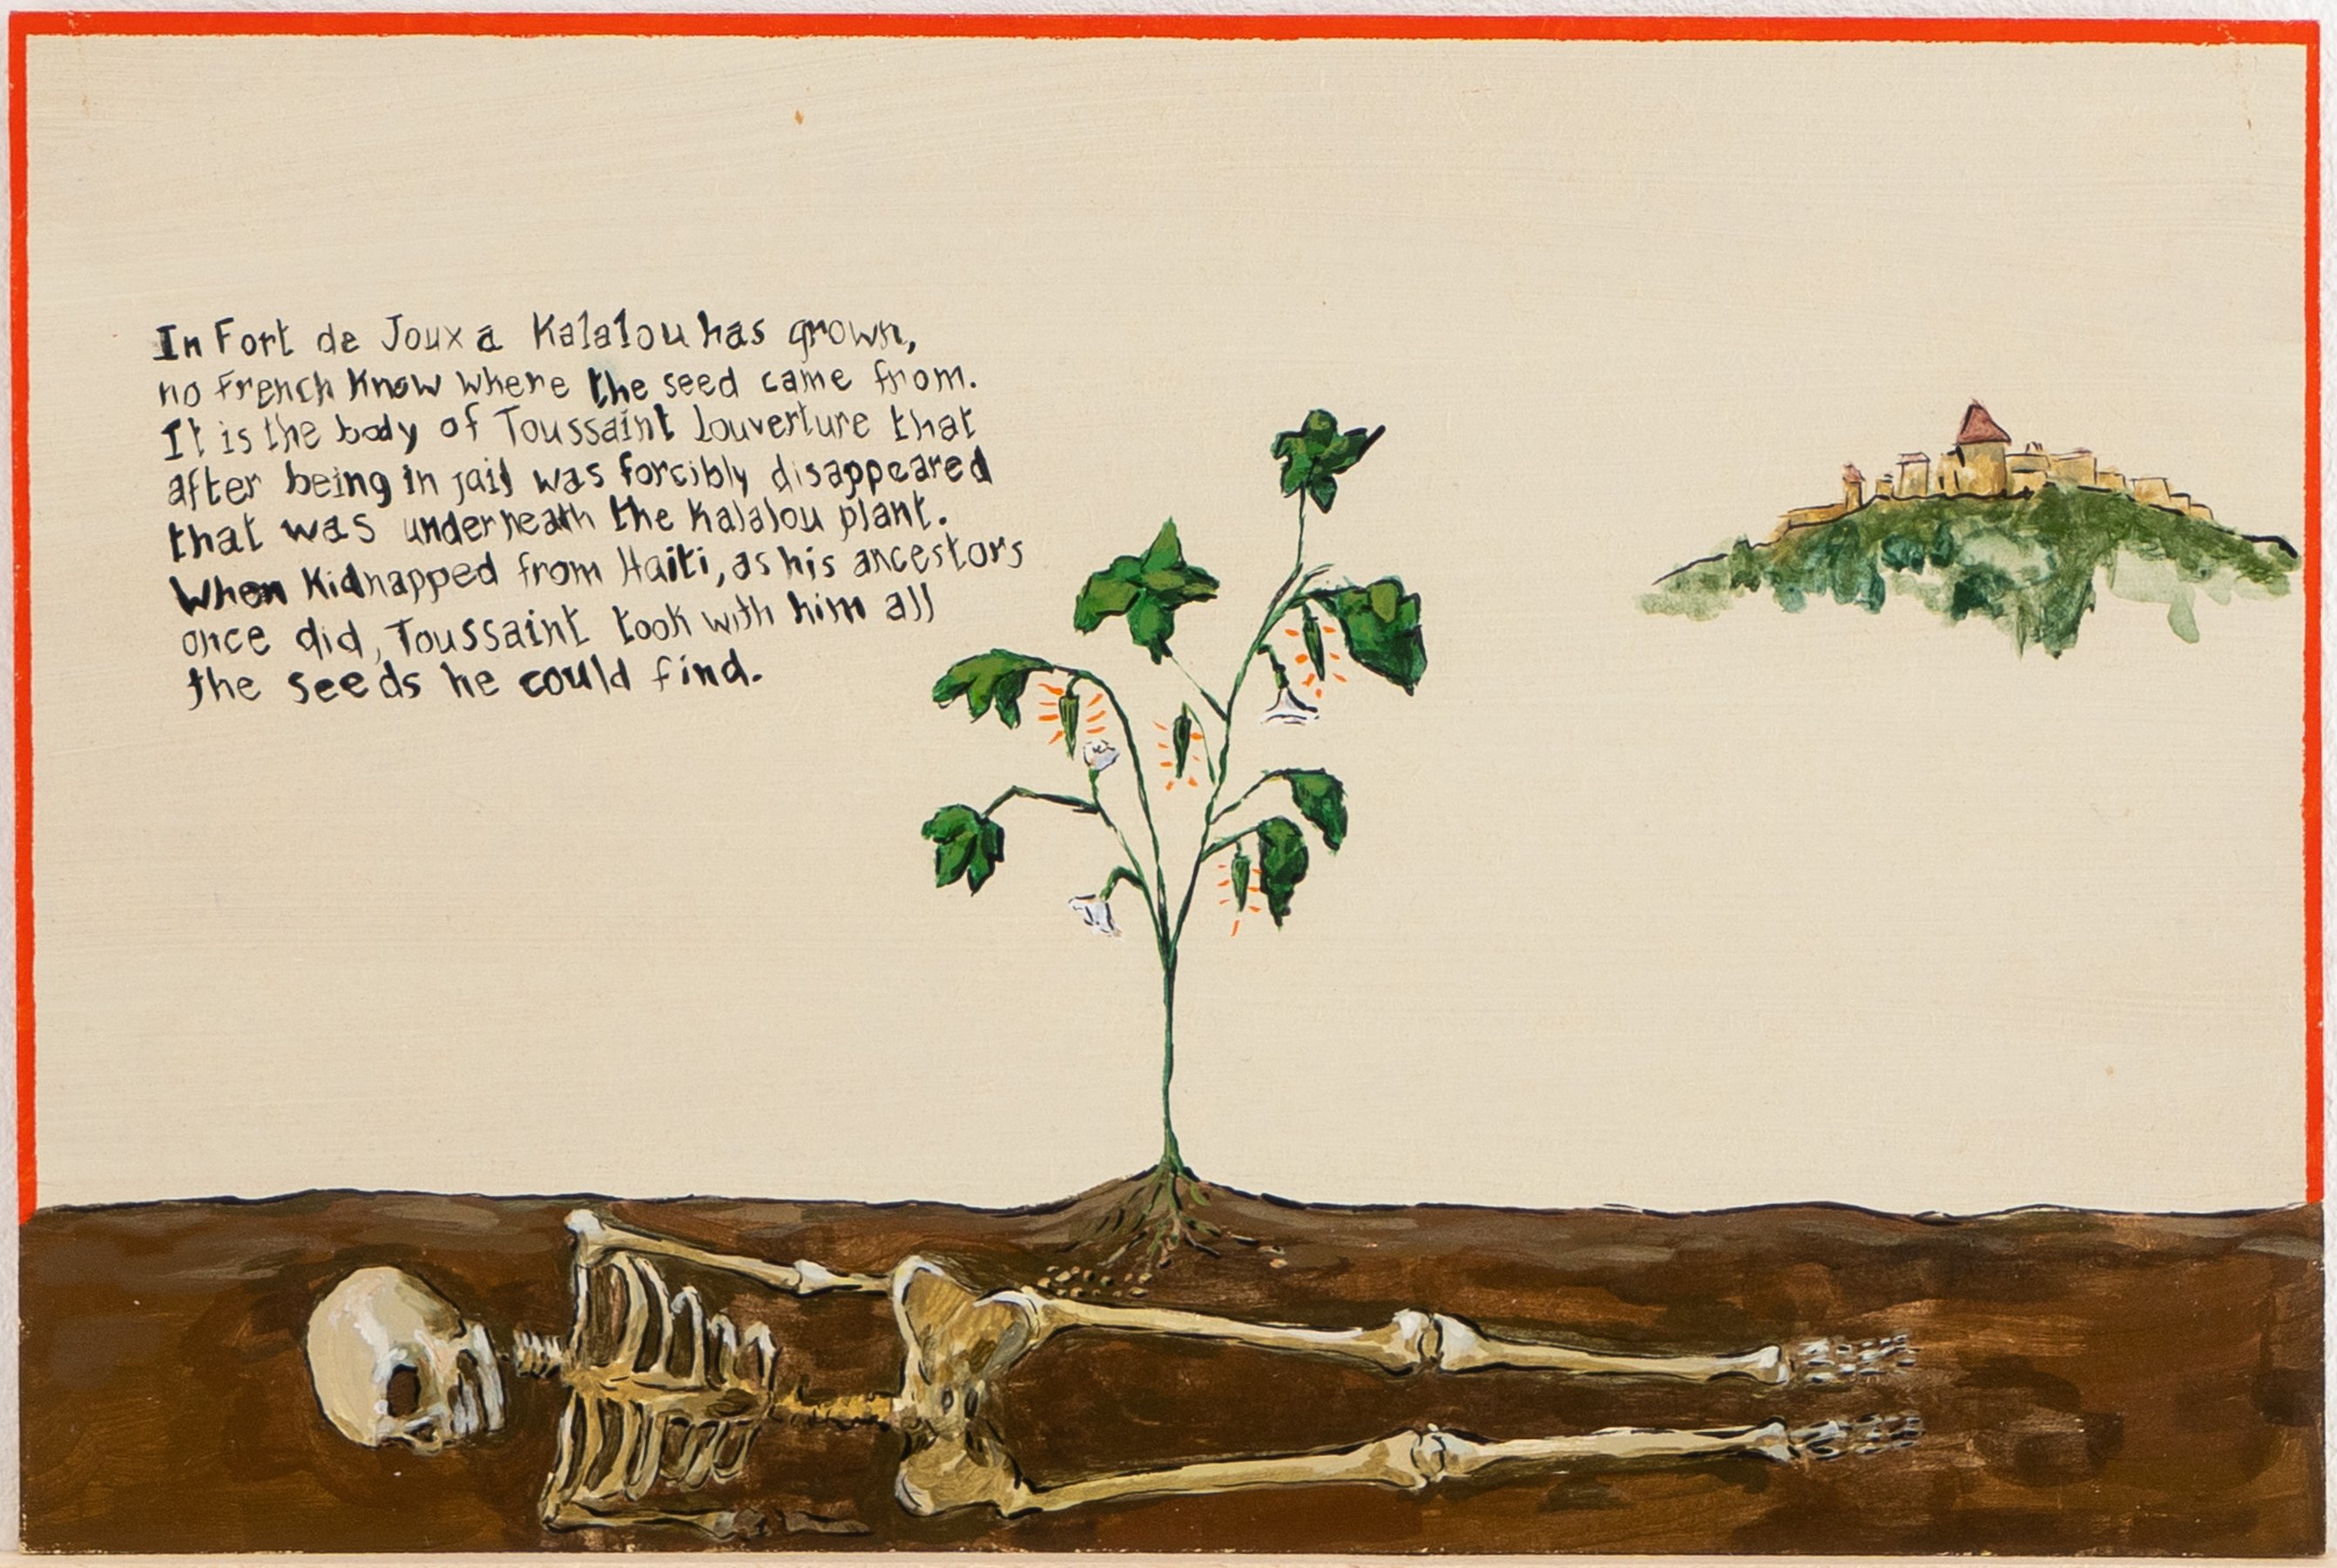 In Fort de Joux a Kalalou has grown,
no French know where the seed came from.
It is the body of Toussaint Louverture that
after being in jail was forcibly disappeared
that was underneath the Kalalou plant.
When Kidnapped from Haiti, as his ancestors
once did, Toussaint took with him all
the seeds he could find.